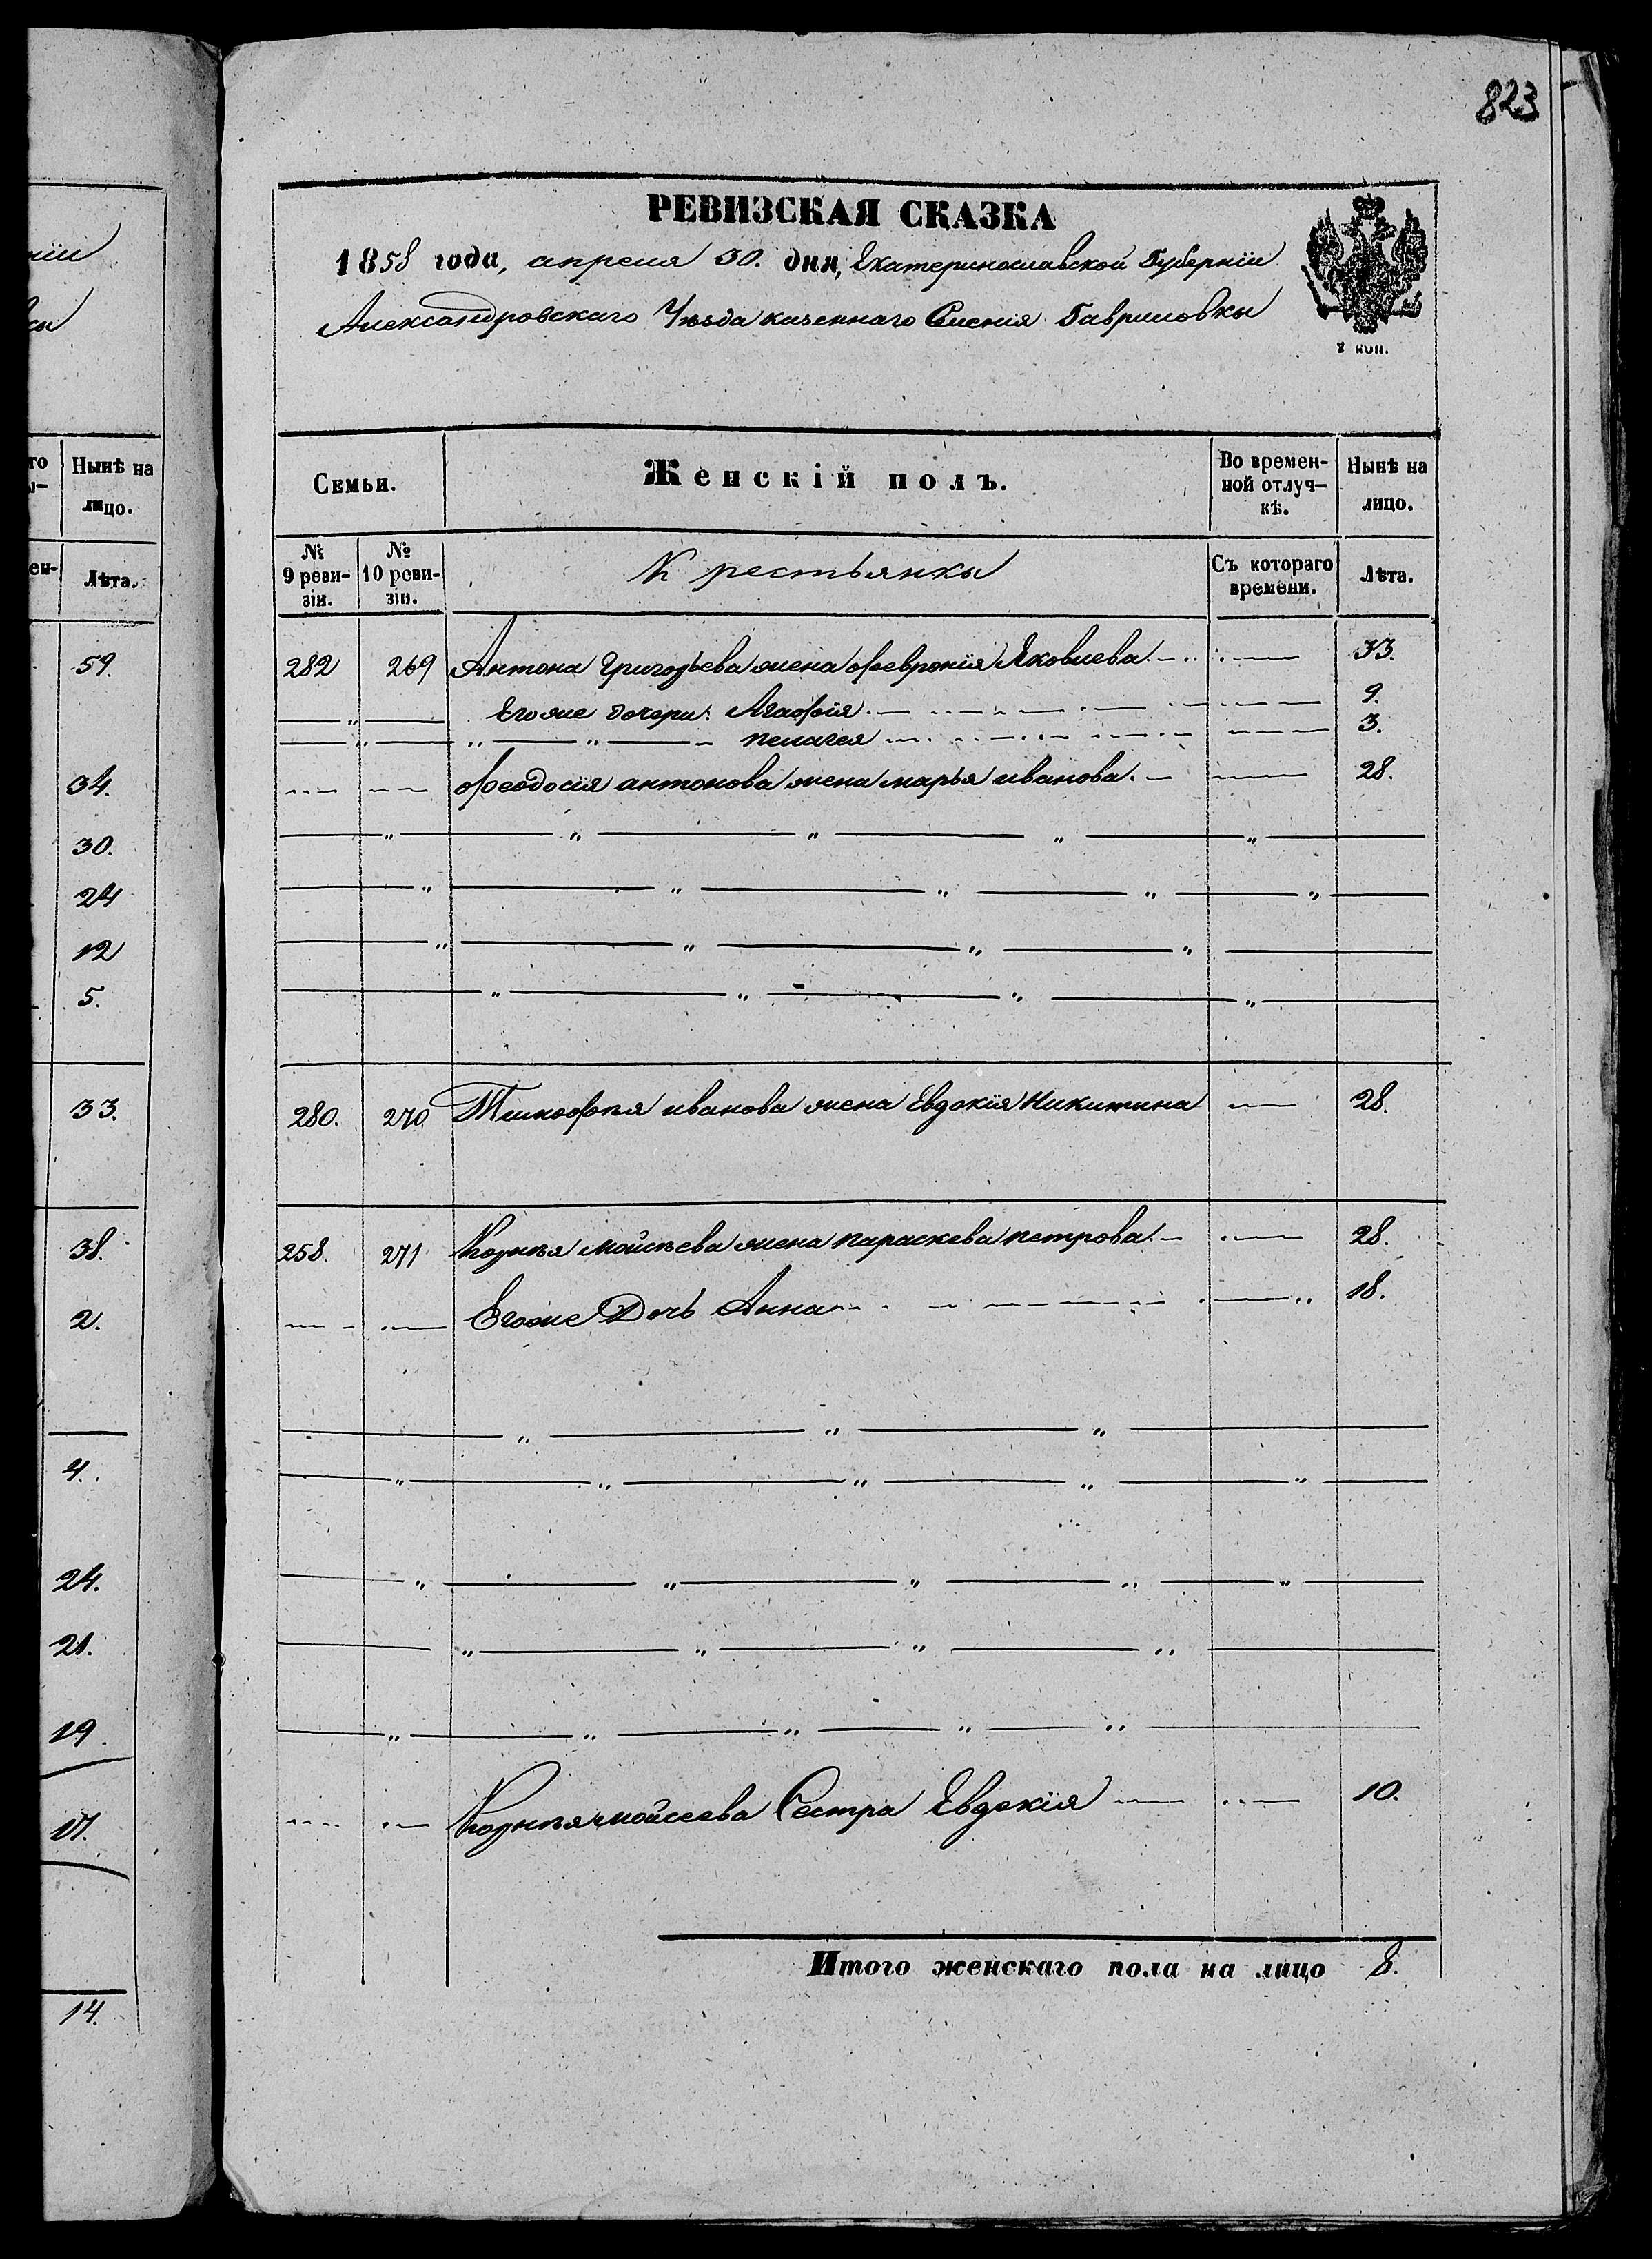 823
РЕВИЗСКАЯ СКАЗКА
1858 года, апреля 30. дня, Екатеринославской Губернiи
Александровскаго Уѣзда казеннаго Селенiя Гавриловки
коп.
Семьи.
Женскiй полъ.
Во времен-
ной отлуч-
кѣ.
Нынѣ на
лицо.
№
9 реви-
зiи.
№
10 реви-
зiи.
Крестьянки
Съ котораго
времени.
Лѣта.
282 269 Антона Григорьева жена Февронiя Яковлева 33.
Егоже дочери: Агафiя 9.
Пелагея 3.
Феодосiя антонова жена марья иванова. 28.
280. 270 Тимофѣя иванова жена Евдокiя Никитина 28.
258. 271 Корнѣя мойсѣева жена параскева петрова 28.
Егоже Дочь Анна 18.
Корнѣя мойсеева Сестра Евдокiя 10.
Итого женскаго пола на лицо 8.
нiи
го
Нынѣ на
лицо.
ен-
Лѣта.
59.
34.
30.
24
12
5.
33.
38.
2.
4.
24.
21.
19.
17.
14.